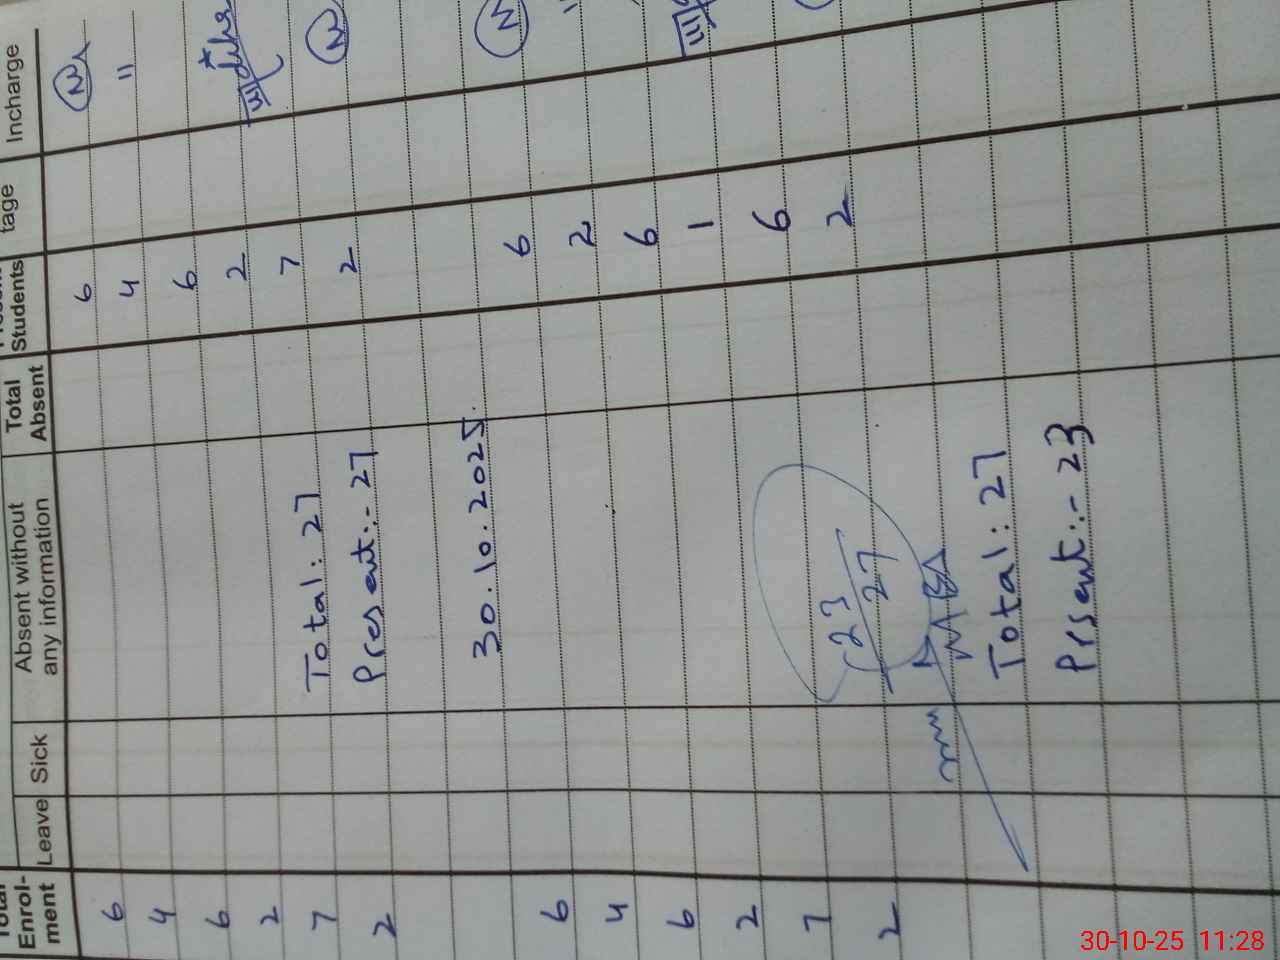 Total Enrol-ment Leave Sick Absent without any information Total Absent Students tage Incharge
6 6
4 4 "
6 6
2 2
7 Total: 27 7
2 Present:- 27 2
30.10.2025.
6 6
4 2 "
6 6
2 1
7 6
2 23/27 2
Total: 27
Prsent:- 23
30-10-25 11:28